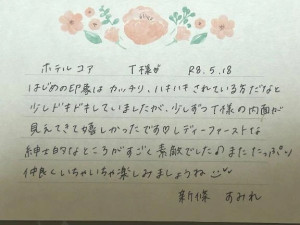 ホテルコア T様♂ R8.5.18
はじめの印象は カッチリ、ハキハキ されている方だなと
少しドキドキしていましたが、少しずつT様の内面が
見えてきて嬉しかったです♡レディーファーストな
紳士的なところがすごく素敵でした♪またたっぷり
仲良くいちゃいちゃ楽しみましょうね
新條 あみれ